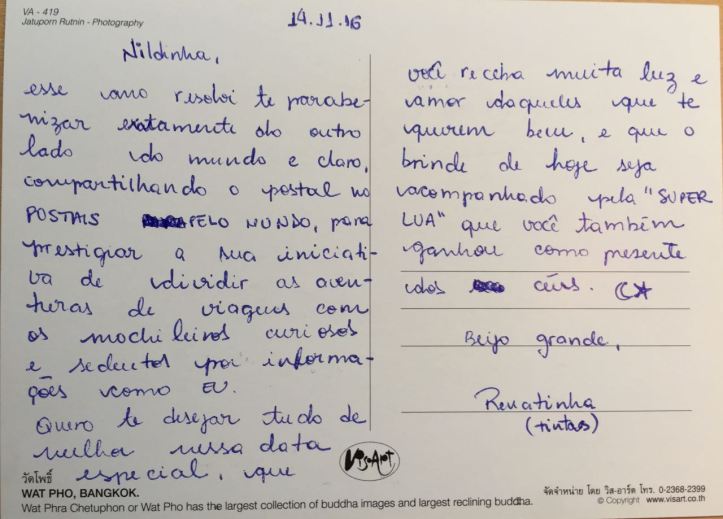 VA - 419
Jatuporn Rutnin - Photography
14.11.16
Nildinha,
esse ano resolvi te parabe-
nizar exatamente do outro
lado do mundo e claro,
compartilhando o postal no
POSTAIS PELO MUNDO, para
prestigiar a sua iniciati-
va de dividir as aven-
turas de viagens com
os mochileiros curiosos
e sedentos por informa-
ções como EU.
Quero te desejar tudo de
melhor nessa data
especial, que
você receba muita luz e
amor daqueles que te
querem bem, e que o
brinde de hoje seja
acompanhado pela "SUPER
LUA" que você também
ganhou como presente
dos céus.
Beijo grande,
Renatinha
(tintas)
VisArt
วัดโพธิ์
WAT PHO, BANGKOK.
Wat Phra Chetuphon or Wat Pho has the largest collection of buddha images and largest reclining buddha.
จัดจำหน่าย โดย วิส-อาร์ต โทร. 0-2368-2399
© Copyright www.visart.co.th